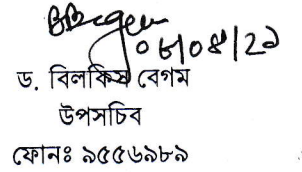 ০৮/০৪/২১
ড. বিলকিস বেগম
উপসচিব
ফোনঃ ৯৫৫৬৯৮৯